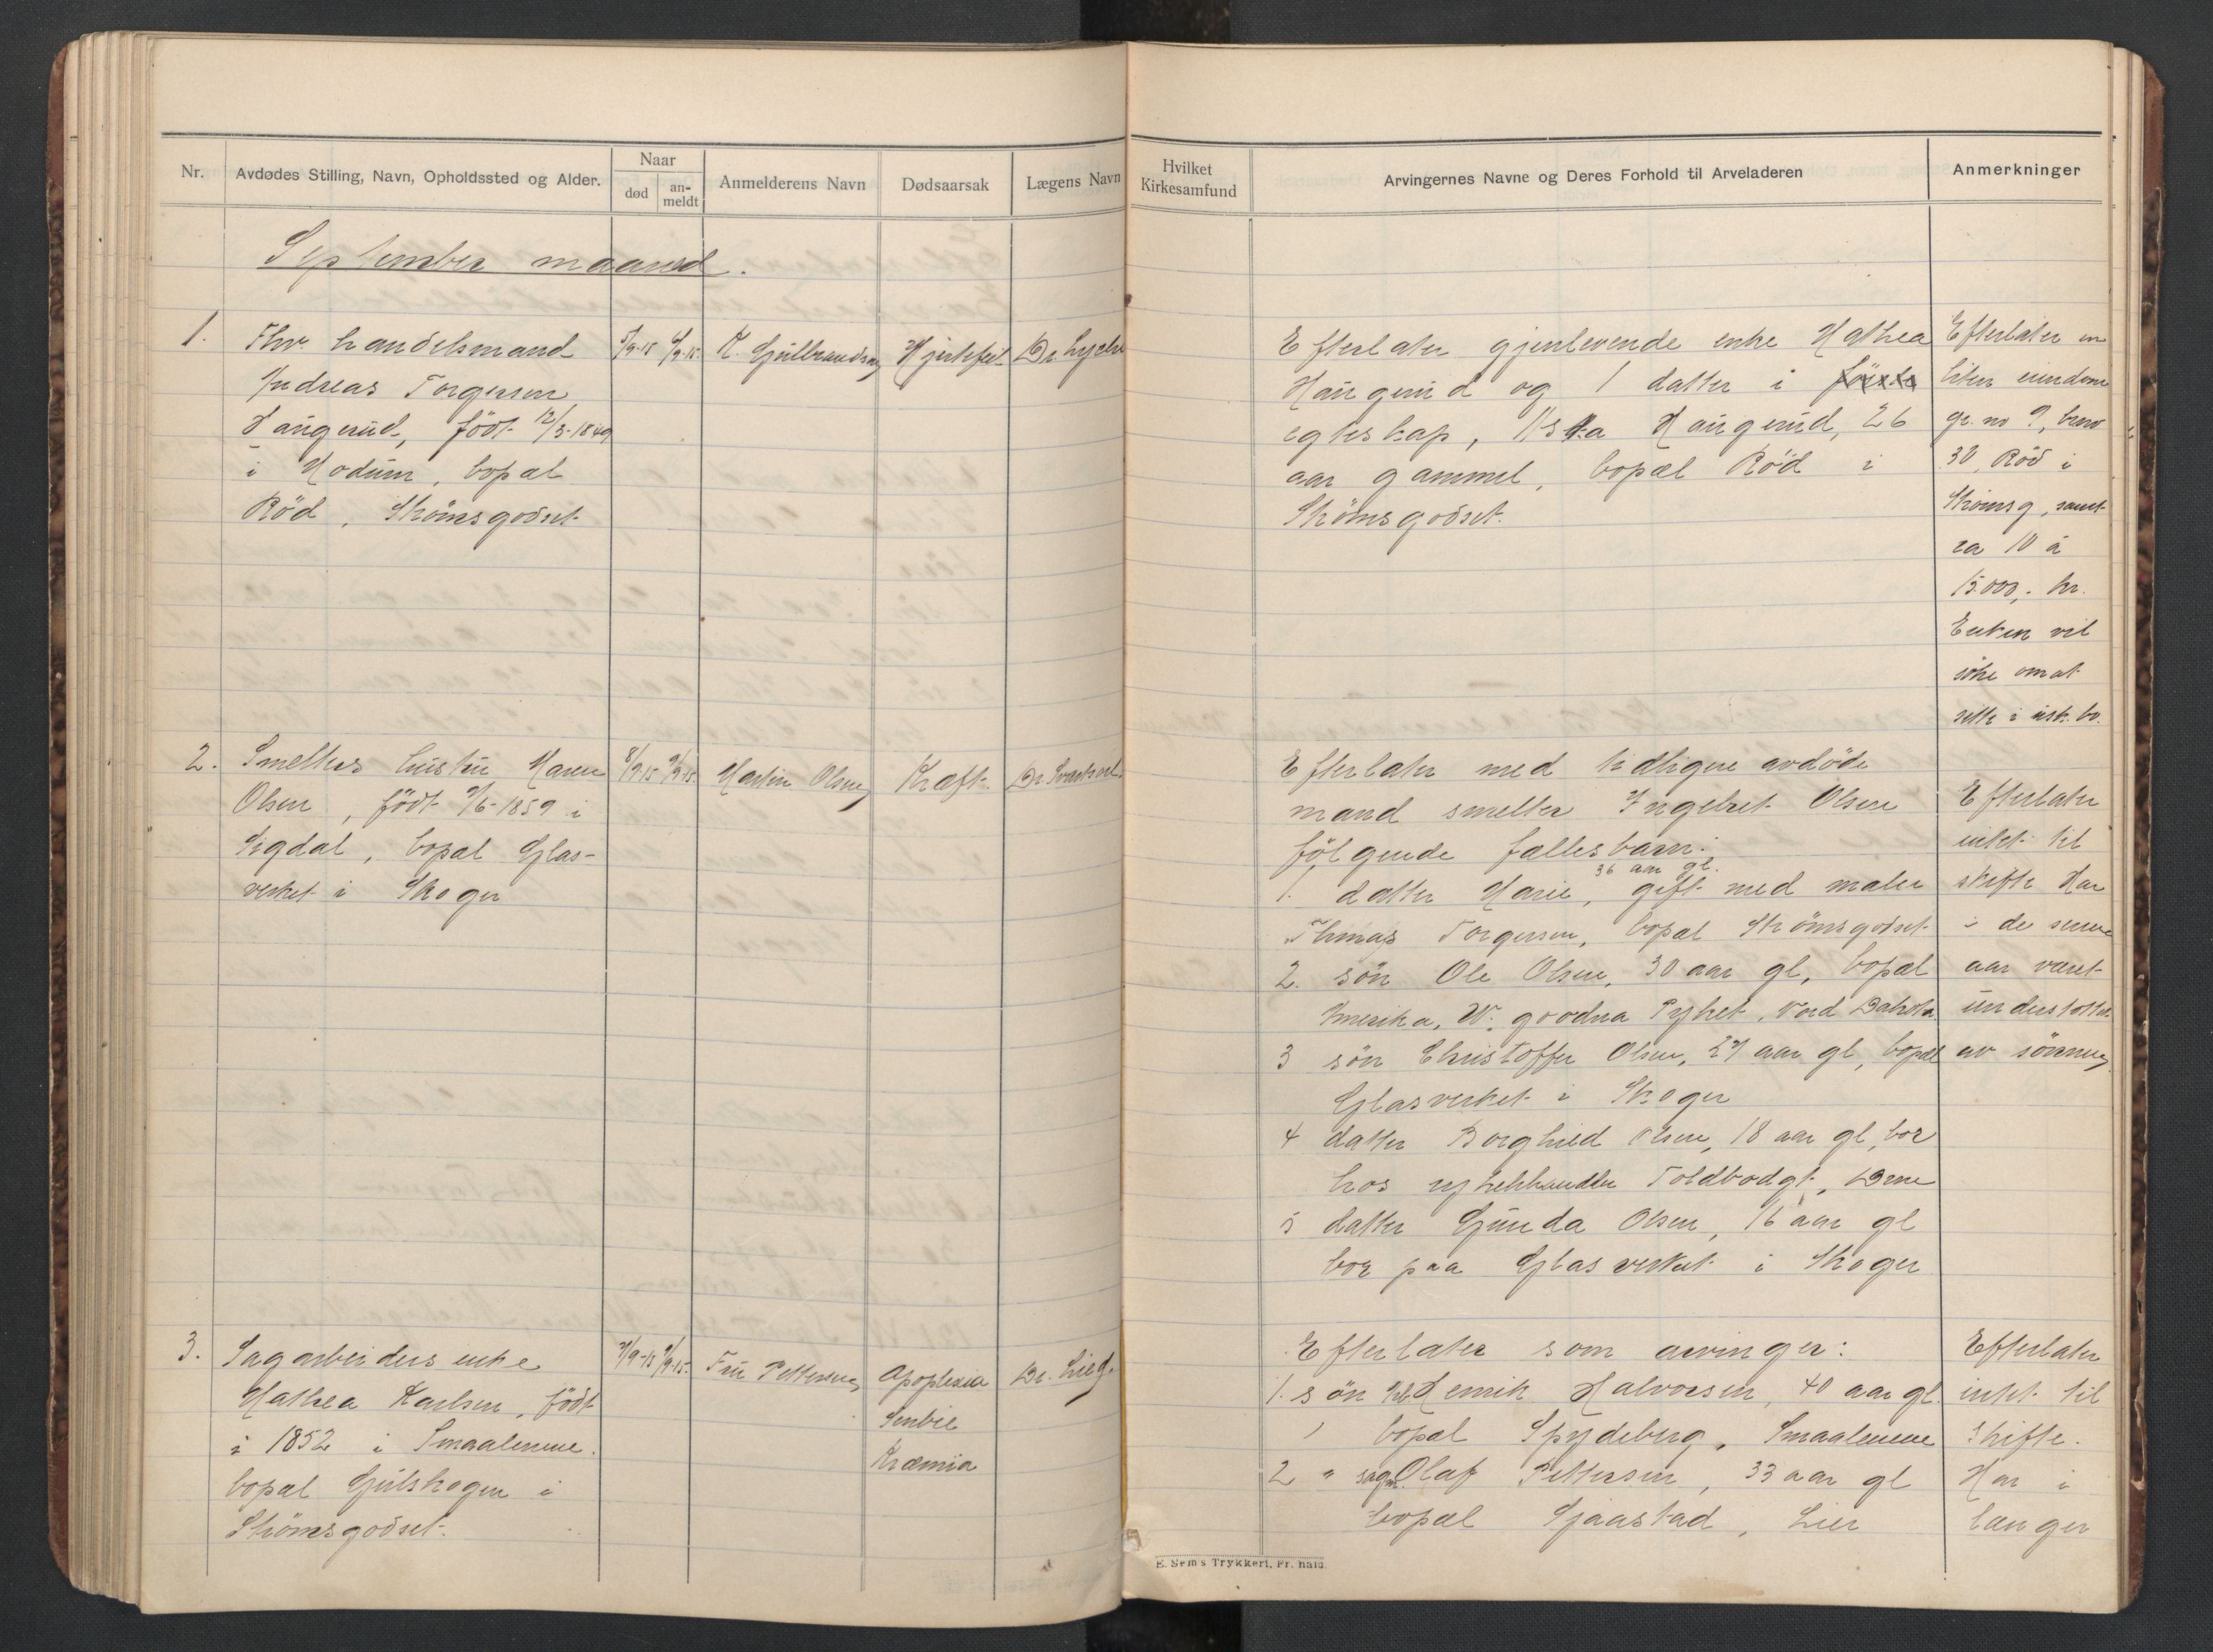 Nr.
Avdødes Stilling, Navn, Opholdssted og Alder.
Naar
død
an-
meldt
Anmelderens Navn
Dødsaarsak
Lægens Navn
Hvilket
Kirkesamfund
Arvingernes Navne og Deres Forhold til Arveladeren
Anmerkninger
September maaned.
1.
Fhv. handelsmand
Andreas Torgersen
Haugerud, födt 12/3-1849
i Modum, bopæl
Rød, Strömsgodset
5/9-15
6/9-15.
K. Gulbrandsen
Hjertefeil
Efterlater gjenlevende enke Mathea
Haugerud og 1 datter i förste
egteskap, Asta Haugerud, 26
aar gammel, bopæl Rød i
Strömsgodset.
Efterlater en
liten eiendom
gr. no 9, brno
30, Rød i
Strömsg, samt
ca 10 á
15.000,- kr.
Enken vil
söke om at
sitte i usk. bo.
2.
Smelters hustru Maren
Olsen, födt 9/6-1859 i
Sigdal, bopæl Glas-
verket i Skoger
8/9-15
9/9-15
Martin Olsen
Kræft.
Efterlater med tidligere avdöde
mand smelter Ingebret Olsen
fölgende fællesbarn:
36 aar gl.
1. datter Marie, gift med maler
Thomas Torgersen, bopæl Strömsgodset
2. sön Ole Olsen, 30 aar gl, bopæl
Amerika, W. Nord Dakota.
3 sön Christoffer Olsen, 27 aar gl, bopæl
Glasverket i Skoger
4 datter Borghild Olsen, 18 aar gl, bor
hos Toldbodgt, Dmn
5 datter Gunda Olsen, 16 aar gl
bor paa Glasverket i Skoger
Efterlater
intet til
skifte Har
i de senere
aar været
understöttet
av sönnen
3.
Sagarbeiders enke
Mathea Karlsen, födt
i 1852 i Smaalenene.
bopæl Gulskogen i
Strömsgodset.
Fru Pettersen
Apoplexia
Dr. Lieg.
Efterlater som arvinger:
1. sön Henrik Halvorsen, 40 aar gl.
bopæl Spydeberg, Smaalenene
2 " sagm. Olaf Pettersen, 33 aar gl
bopæl Sjaastad, Lier
Efterlater
intet til
skifte.
Har i
længer
E. Sem's Trykkeri, Fr.hald.